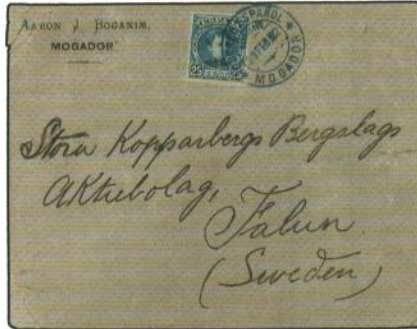 AARON J BOGANIM,
MOGADOR
ESPAÑOL
MOGADOR
25 25
Stora Kopparbergs Bergslags
Aktiebolag,
Falun.
(Sweden)